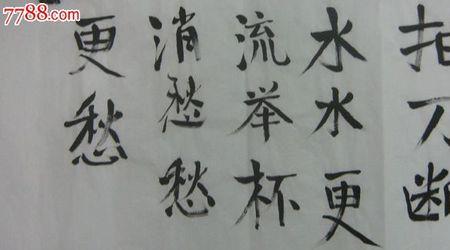 7788.com
抽刀断
水水更
流举杯
消愁愁
更愁